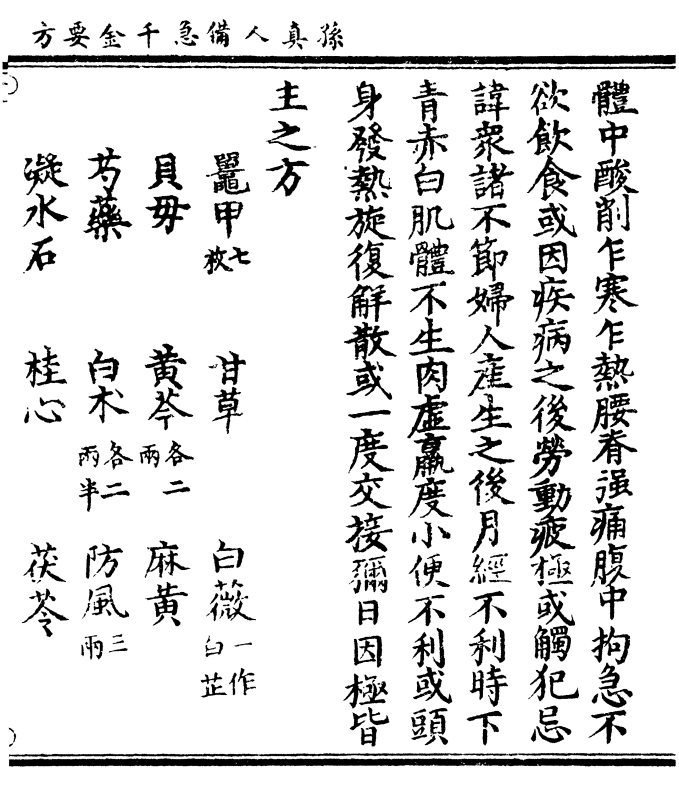 孫真人備急千金要方
體中酸削乍寒乍熱腰脊强痛腹中拘急不
欲飲食或因疾病之後勞動疲極或觸犯忌
諱衆諸不節婦人產生之後月經不利時下
青赤白肌體不生肉虛羸度小便不利或頭
身發熱旋復解散或一度交接彌日因極皆
主之方
鼊甲七枚 甘草 白薇一作白芷
貝毋 黃芩各二兩 麻黃
芍藥 白术各二兩半 防風三兩
凝水石 桂心 茯苓